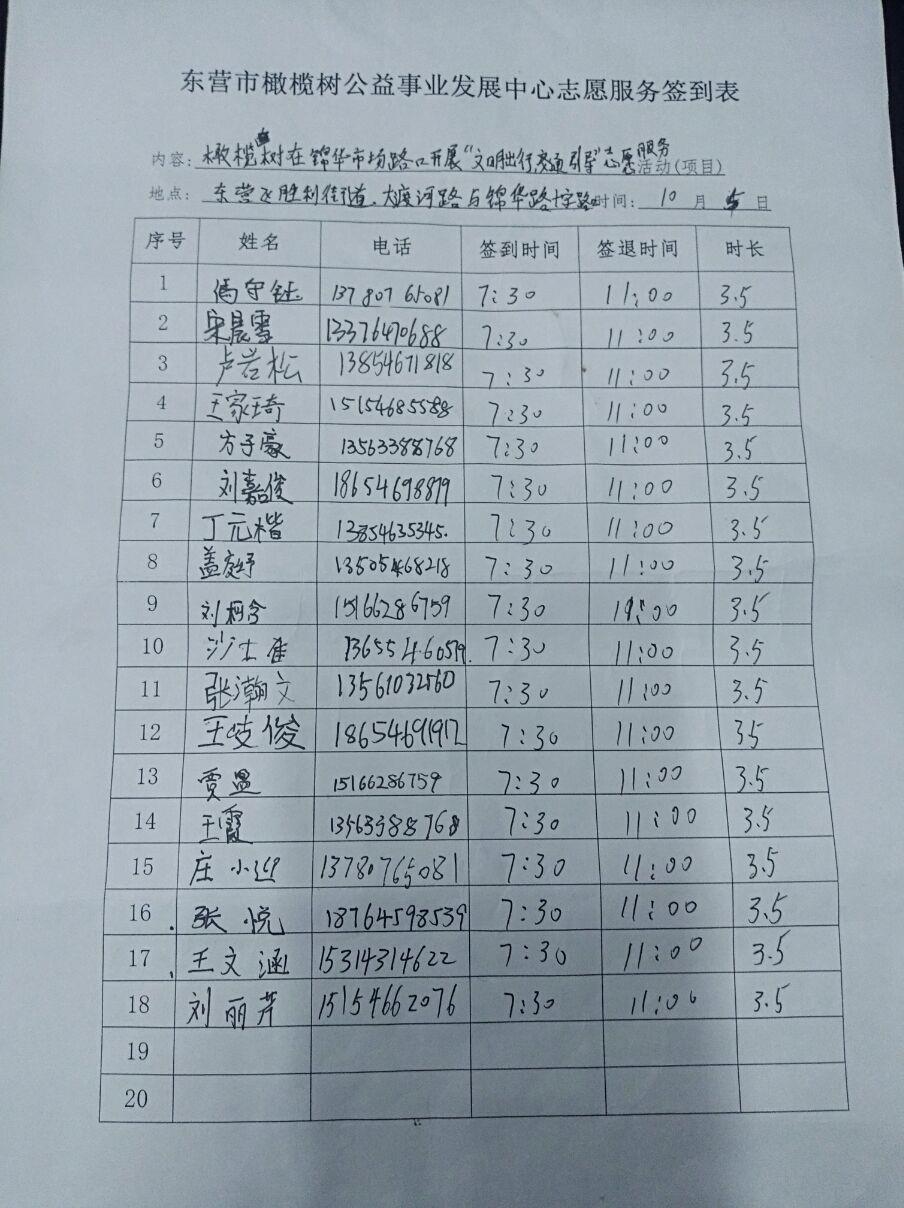 东营市橄榄树公益事业发展中心志愿服务签到表
内容: 橄榄树在锦华市场路口开展“文明出行交通引导”志愿服务活动(项目)
地点: 东营区胜利街道,大渡河路与锦华路十字路 时间: 10 月 5 日
序号 姓名 电话 签到时间 签退时间 时长
1 13780765081 7:30 11:00 3.5
2 宋晨雪 13376470688 7:30 11:00 3.5
3 卢岩松 13854671818 7:30 11:00 3.5
4 王家琦 15154685588 7:30 11:00 3.5
5 方子豪 13563388768 7:30 11:00 3.5
6 刘嘉俊 18654698879 7:30 11:00 3.5
7 丁元楷 13854635345. 7:30 11:00 3.5
8 盖庭妤 13505468218 7:30 11:00 3.5
9 刘柯含 15166286759 7:30 11:00 3.5
10 7:30 11:00 3.5
11 张瀚文 13561032560 7:30 11:00 3.5
12 王岐俊 18654691912 7:30 11:00 35
13 贾显 15166286759 7:30 11:00 3.5
14 王霞 13563388768 7:30 11:00 3.5
15 庄小迎 13780765081 7:30 11:00 3.5
16 张悦 18764598539 7:30 11:00 3.5
17 王文涵 15314314622 7:30 11:00 3.5
18 刘丽芹 15154662076 7:30 11:00 3.5
19
20